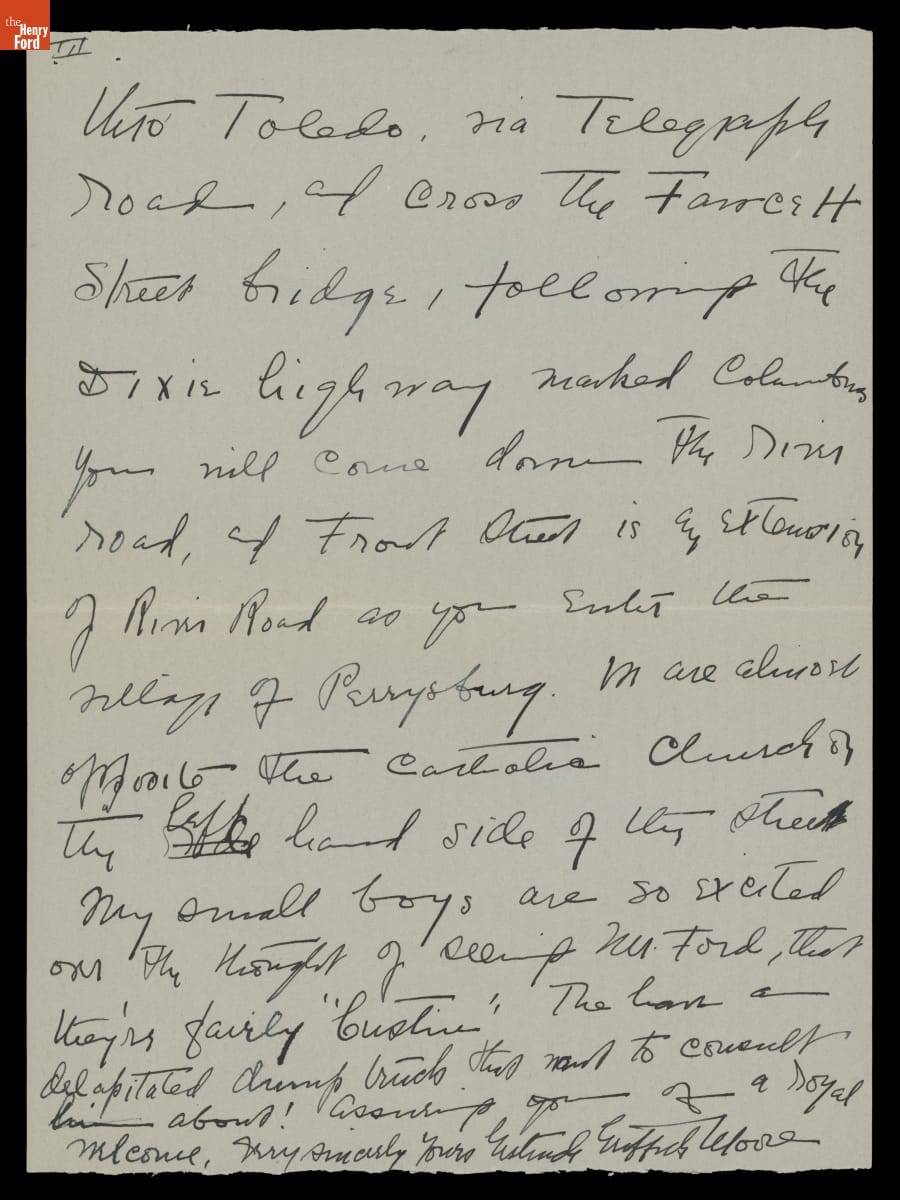 the
Henry
Ford
III
into Toledo, via Telegraph
road, and cross the Fawcett
Street bridge, following the
Dixie highway marked Columbus
you will come down the River
road, and Front Street is an extension
of River Road as you enter the
village of Perrysburg. We are almost
opposite the Catholic Church on
the left hand side of the street
My small boys are so excited
over the thought of seeing Mr. Ford, that
they're fairly "bustin". The have a
decapitated dump truck they want to consult
him about! Assuring you of a royal
welcome, Very sincerely Yours Gertrude Moore